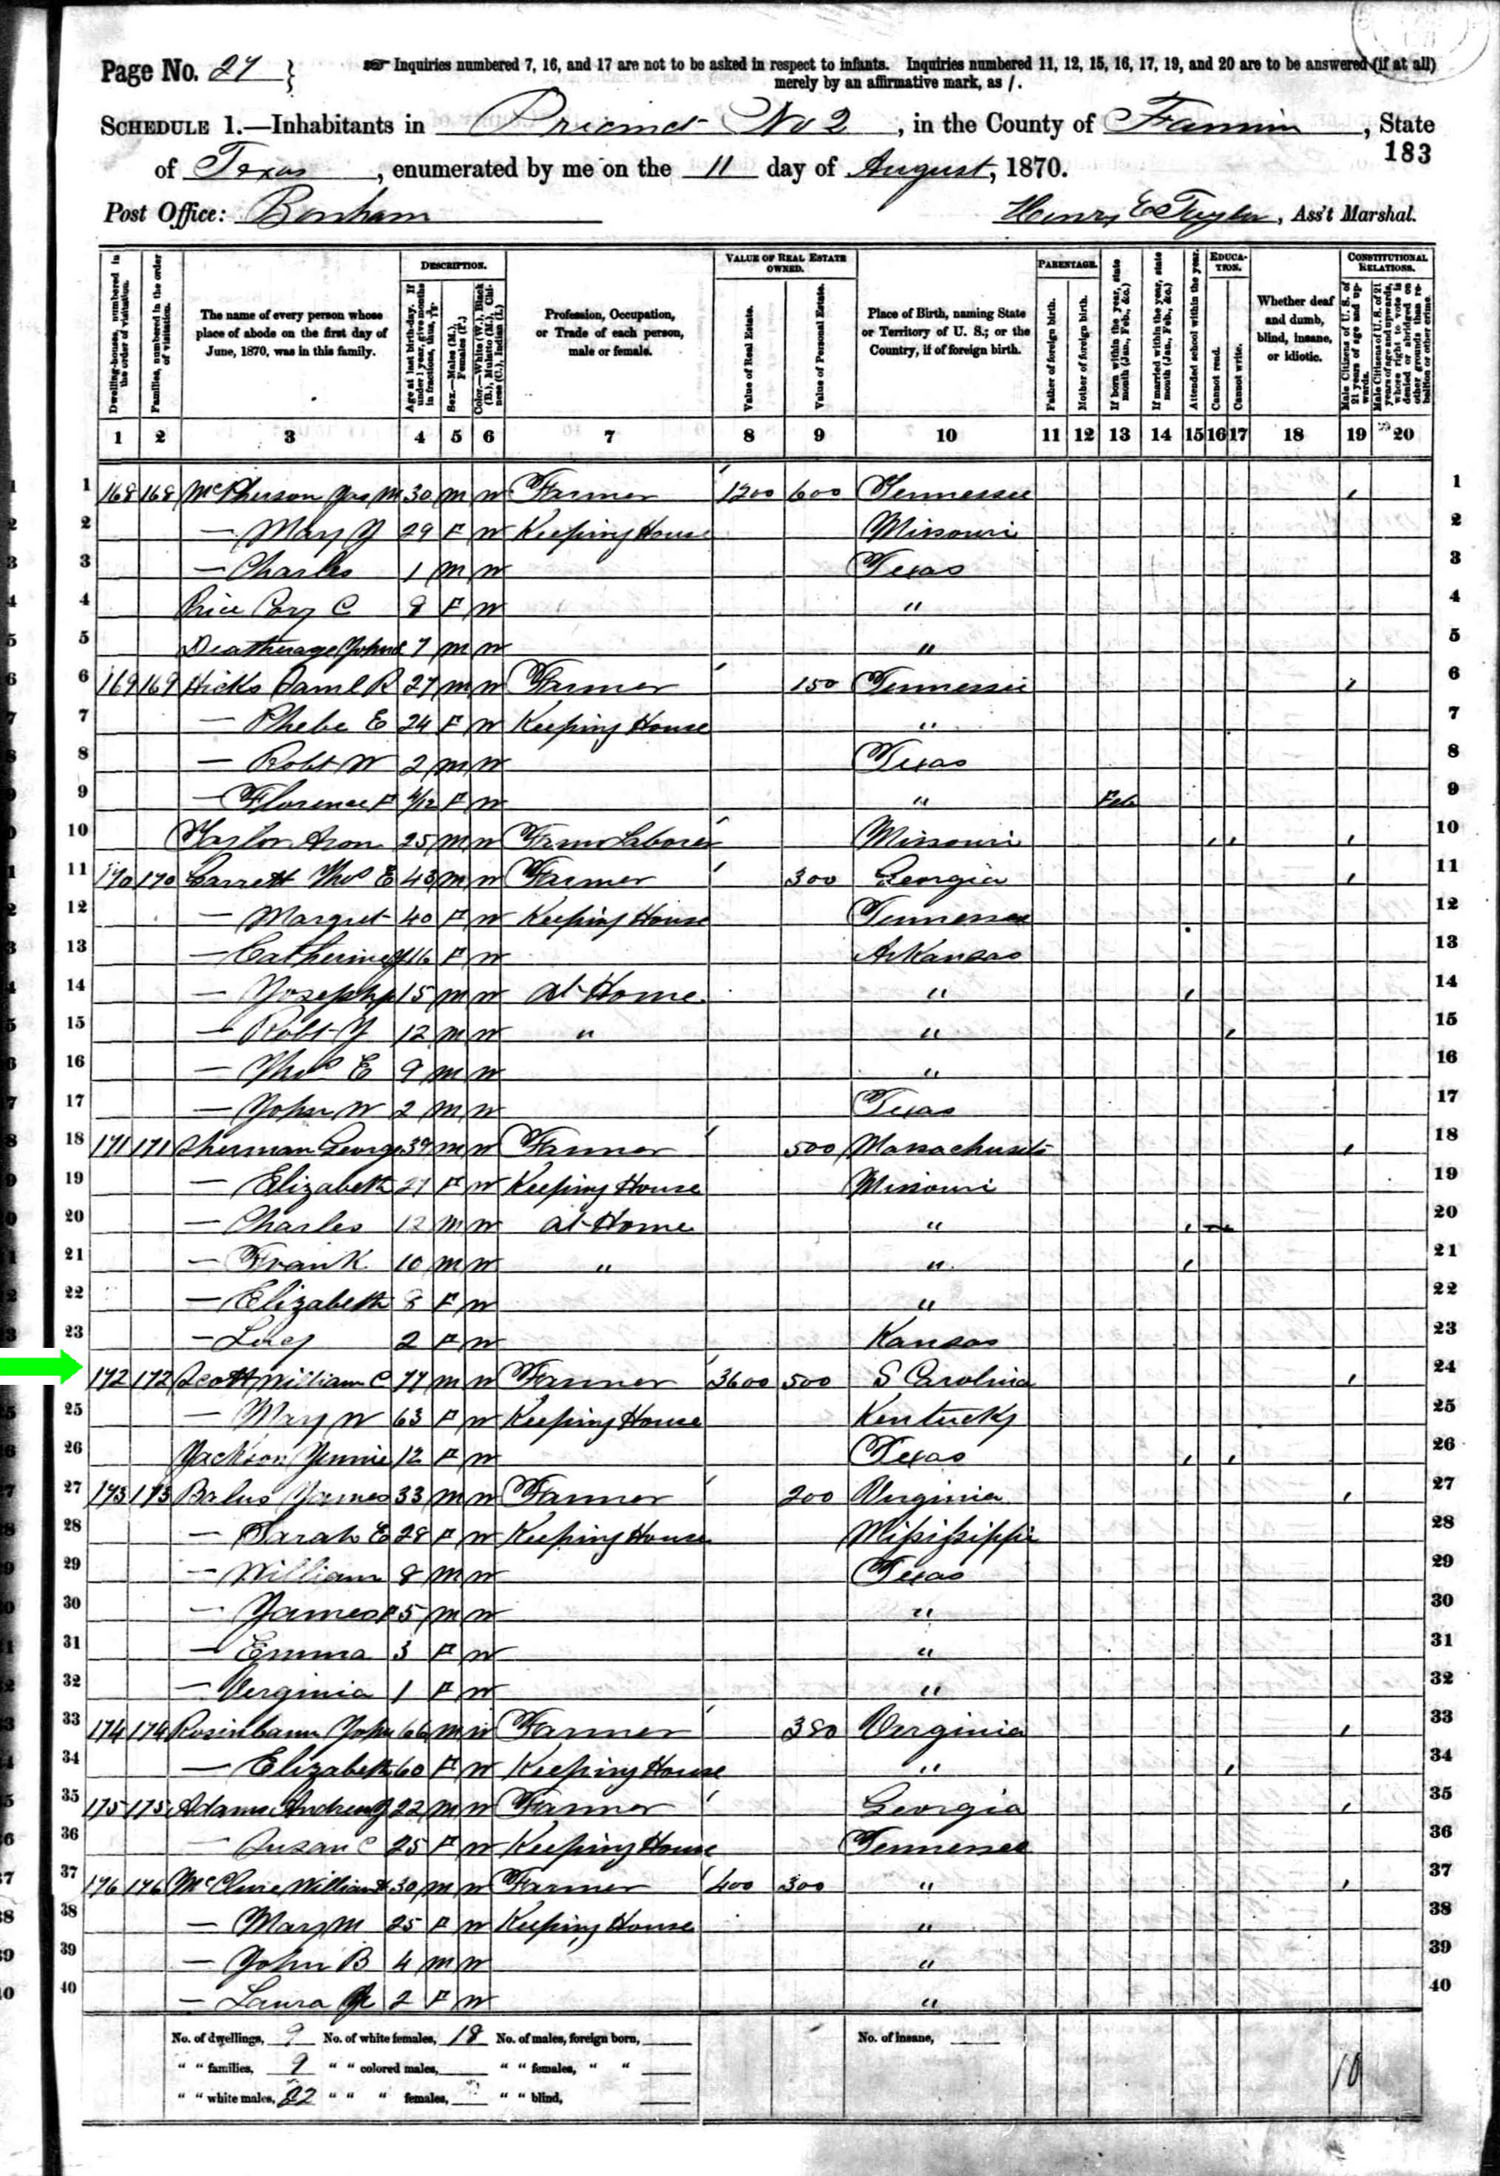 Page No. 27 } Inquiries numbered 7, 16, and 17 are not to be asked in respect to infants. Inquiries numbered 11, 12, 15, 16, 17, 19, and 20 are to be answered (if at all)
merely by an affirmative mark, as /.
SCHEDULE 1.—Inhabitants in Precinct No 2, in the County of Fannin, State
183
of Texas, enumerated by me on the 11 day of August, 1870.
Post Office: Bonham Henry E Taylor, Ass't Marshal.
DESCRIPTION. VALUE OF REAL ESTATE OWNED. PARENTAGE. EDUCATION. CONSTITUTIONAL RELATIONS.
Dwelling-houses, numbered in the order of visitation.
Families, numbered in the order of visitation.
The name of every person whose place of abode on the first day of June, 1870, was in this family.
Age at last birth-day. If under 1 year, give months in fractions, thus, 3/12
Sex.—Males (M.), Females (F.)
Color.—White (W.), Black (B.), Mulatto (M.), Chinese (C.), Indian (I.)
Profession, Occupation, or Trade of each person, male or female.
Value of Real Estate.
Value of Personal Estate.
Place of Birth, naming State or Territory of U. S.; or the Country, if of foreign birth.
Father of foreign birth.
Mother of foreign birth.
If born within the year, state month (Jan., Feb., &c.)
If married within the year, state month (Jan., Feb., &c.)
Attended school within the year.
Cannot read.
Cannot write.
Whether deaf and dumb, blind, insane, or idiotic.
Male Citizens of U. S. of 21 years of age and upwards.
Male Citizens of U. S. of 21 years of age and upwards, whose right to vote is denied or abridged on other grounds than rebellion or other crime.
1 2 3 4 5 6 7 8 9 10 11 12 13 14 15 16 17 18 19 20
1 168 168 McPherson Jas M 30 M W Farmer 1200 600 Tennessee / 1
2 — Mary J 29 F W Keeping House Missouri 2
3 — Charles 1 M W Texas 3
4 Price Cory C 8 F W " 4
5 Deatherage John 7 M W " 5
6 169 169 Hicks Saml R 27 M W Farmer 150 Tennessee / 6
7 — Phebe E 24 F W Keeping House " 7
8 — Robt W 2 M W Texas 8
9 — Florence F 4/12 F W " Feb 9
10 Taylor Aron 25 M W Farm Laborer Missouri / / / 10
11 170 170 Garrett Thos E 43 M W Farmer 300 Georgia / 11
12 — Margret 40 F W Keeping House Tennessee 12
13 — Catherine 16 F W Arkansas 13
14 — Joseph 15 M W At Home " / 14
15 — Robt J 12 M W " " / 15
16 — Thos E 9 M W " 16
17 — John W 2 M W Texas 17
18 171 171 Sherman George 39 M W Farmer 500 Massachusets / 18
19 — Elizabeth 27 F W Keeping House Missouri 19
20 — Charles 12 M W At Home " / 20
21 — Frank 10 M W " " / 21
22 — Elizabeth 8 F W " 22
23 — Lucy 2 F W Kansas 23
24 172 172 Scott William C 77 M W Farmer 3600 500 S Carolina / 24
25 — Mary W 63 F W Keeping House Kentucky 25
26 Jackson Jennie 12 F W Texas / / 26
27 173 173 Balus James 33 M W Farmer 200 Virginia / 27
28 — Sarah E 28 F W Keeping House Missippi 28
29 — William 8 M W Texas 29
30 — James 5 M W " 30
31 — Emma 3 F W " 31
32 — Verginia 1 F W " 32
33 174 174 Rosinbaum John 66 M W Farmer 380 Virginia / 33
34 — Elizabeth 60 F W Keeping House " / 34
35 175 175 Adams Andrew J 22 M W Farmer Georgia / 35
36 — Susan C 25 F W Keeping House Tennessee 36
37 176 176 McClure William 30 M W Farmer 400 300 " / 37
38 — Mary M 25 F W Keeping House " 38
39 — John B 4 M W " 39
40 — Laura 2 F W " 40
No. of dwellings, 9 No. of white females, 18 No. of males, foreign born, No. of insane,
" " families, 9 " " colored males, " " females, " "
" " white males, 22 " " " females, " " blind, 10